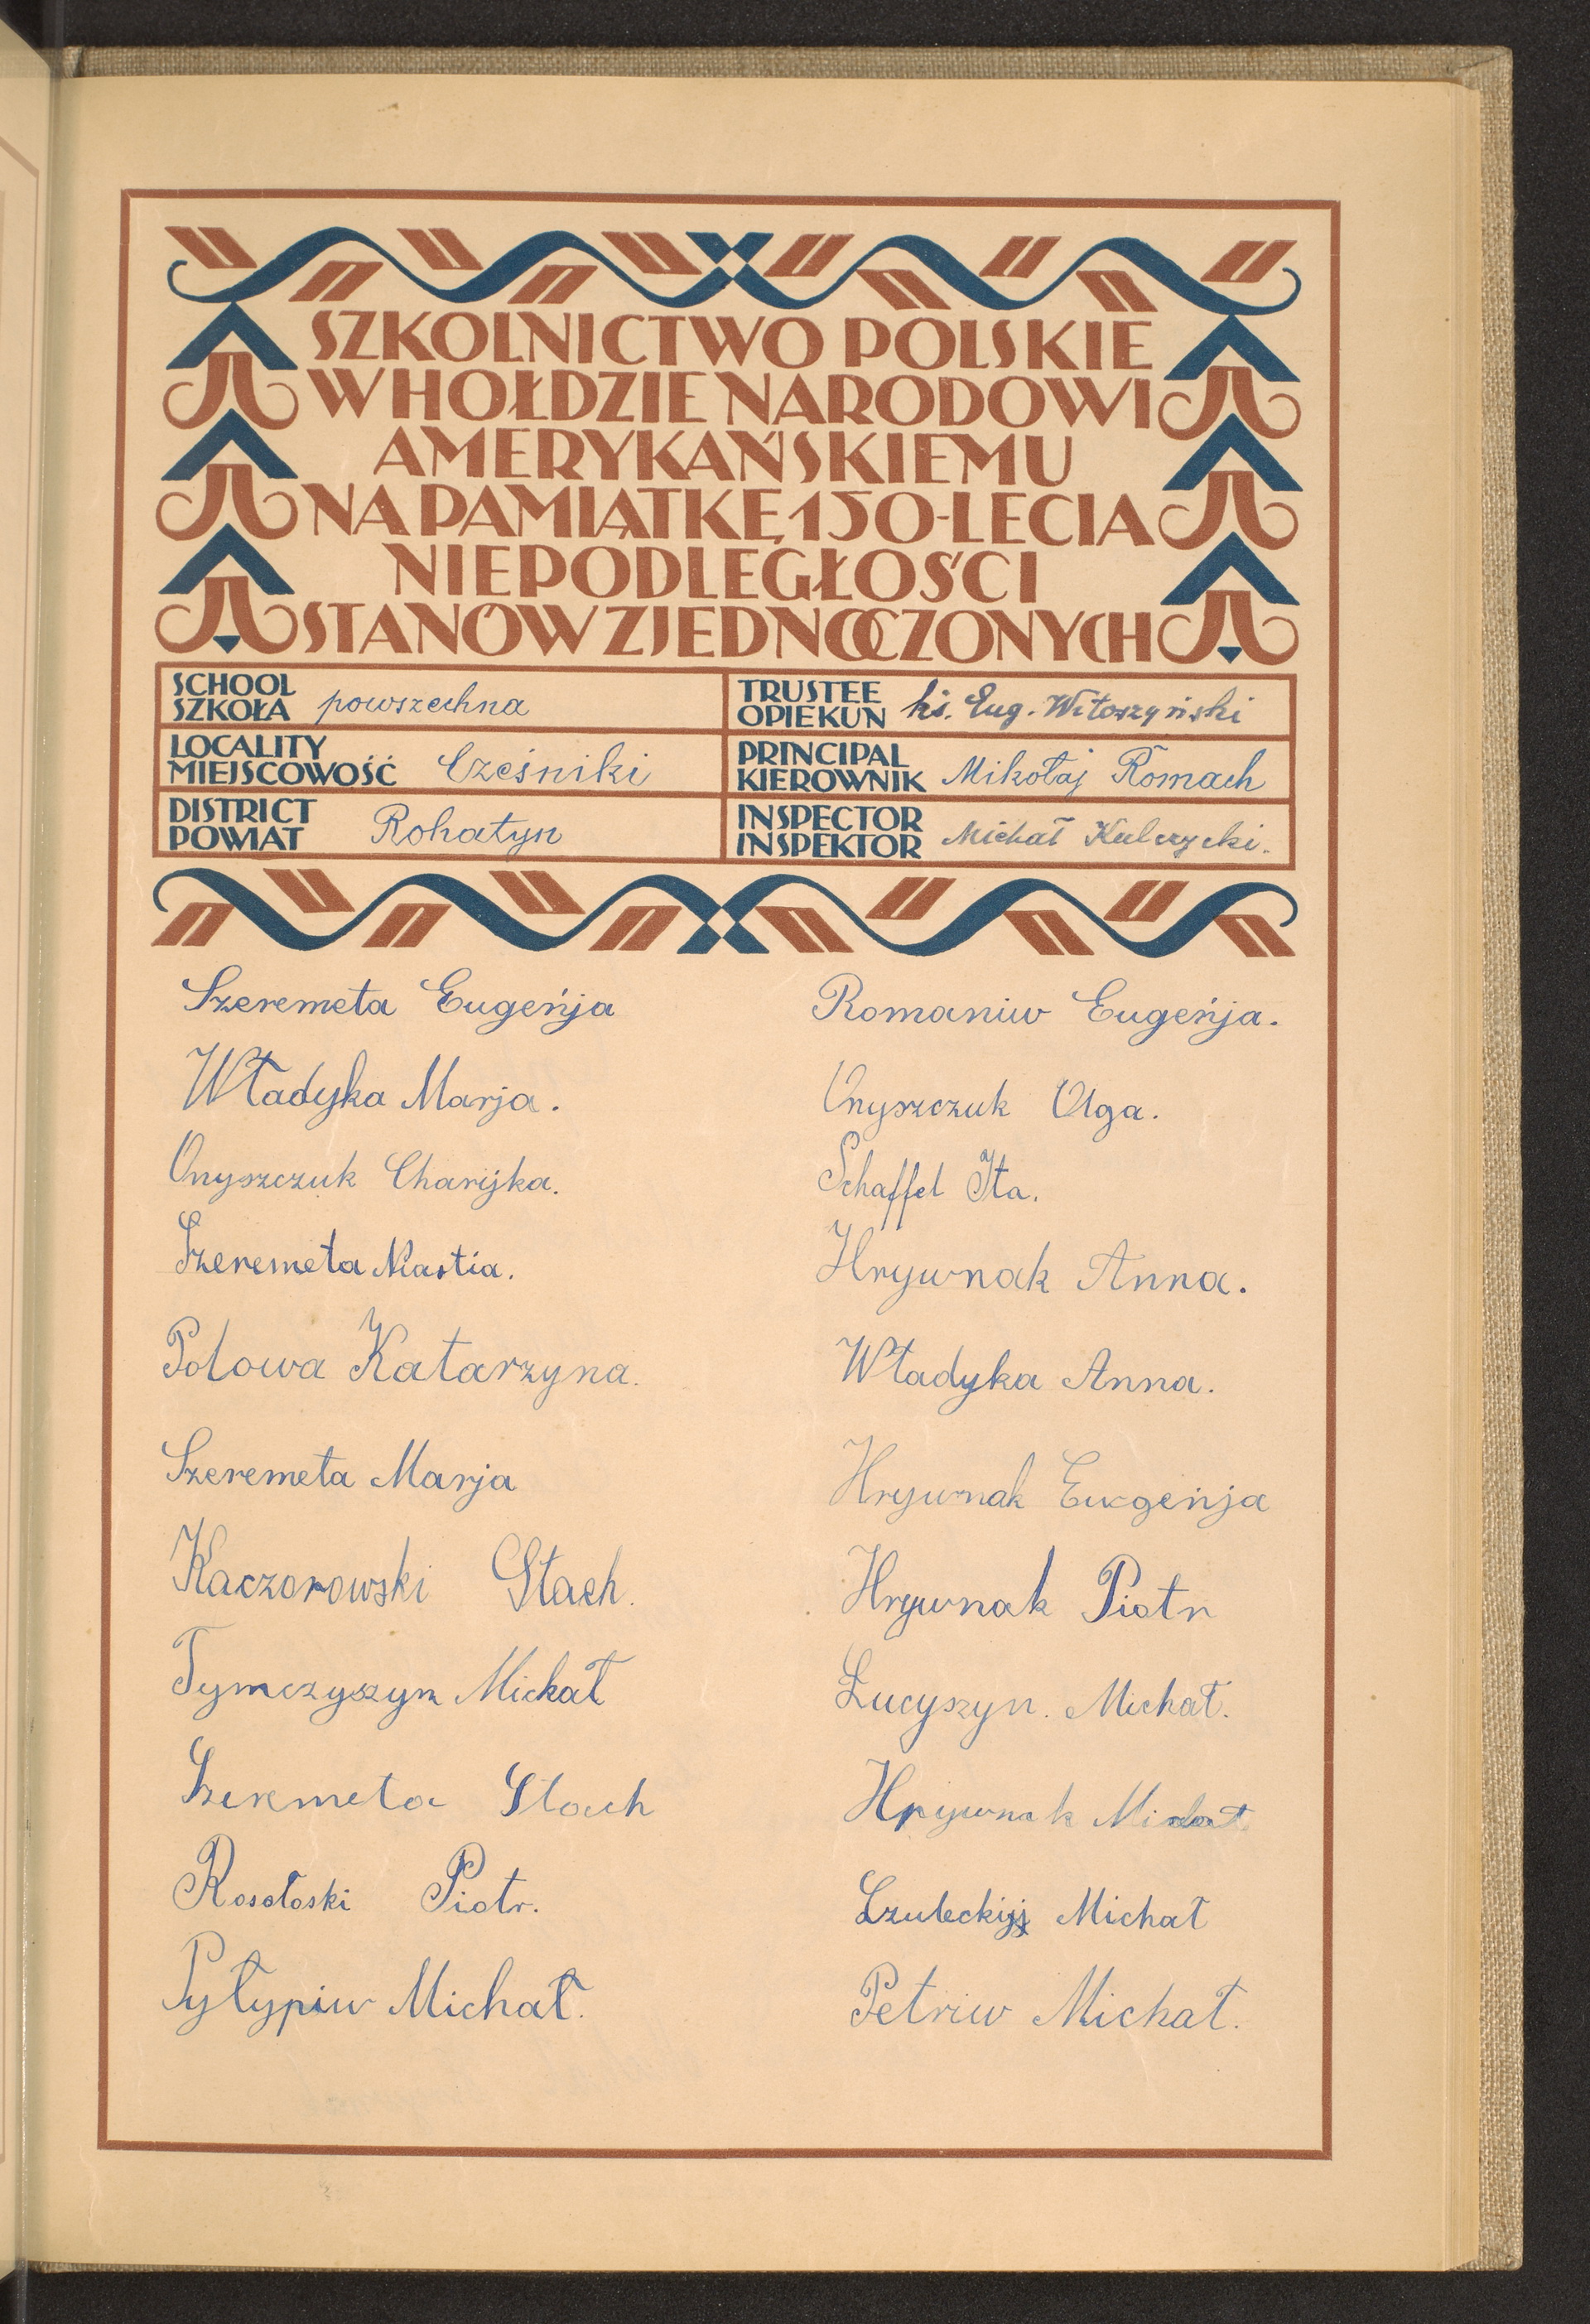 SZKOLNICTWO POLSKIE
W HOŁDZIE NARODOWI
AMERYKAŃSKIEMU
NA PAMIĄTKĘ 150-LECIA
NIEPODLEGŁOŚCI
STANÓW ZJEDNOCZONYCH
SCHOOL
SZKOŁA powszechna
LOCALITY
MIEJSCOWOŚĆ Cześniki
DISTRICT
POWIAT Rohatyn
TRUSTEE
OPIEKUN ks. Eug. Witoszyński
PRINCIPAL
KIEROWNIK Mikołaj Romach
INSPECTOR
INSPEKTOR Michał Kulczycki.
Szeremeta Eugeńja
Władyka Marja.
Onyszczuk Charijka.
Szeremeta Nastia.
Połowa Katarzyna.
Szeremeta Marja
Kaczorowski Stach.
Tymczyszyn Michał
Szeremeta Stach
Rosołoski Piotr.
Pyłypiw Michał.
Romaniw Eugeńja.
Onyszczuk Olga.
Schaffel Ita.
Hrywnak Anna.
Władyka Anna.
Hrywnak Eugeńja
Hrywnak Piotr
Łucyszyn. Michał.
Hrywnak Michał.
Michał
Petriw Michał.